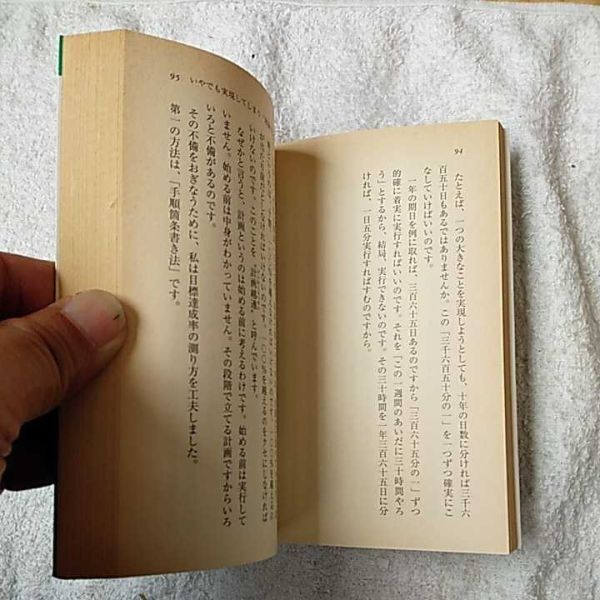 94
たとえば、一つの大きなことを実現しようとしても、十年の日数に分ければ三千六
百五十日もあるではありませんか。この「三千六百五十分の一」を一つずつ確実にこ
なしていけばいいのです。
一年の期日を例に取れば、三百六十五日あるのですから「三百六十五分の一」ずつ
的確に着実に実行すればいいのです。それを「この一週間のあいだに三十時間やろ
う」とするから、結局、実行できないのです。その三十時間を一年三百六十五日に分
ければ、一日五分実行すればすむのですから。
95 いやでも実現してしまう
いけないのです。このことを「計画越過」と呼んでいます。
なぜかと言うと、計画というのは始める前に考えるわけです。始める前は実行して
いません。始める前は中身がわかっていません。その段階で立てる計画ですからいろ
いろと不備があるのです。
その不備をおぎなうために、私は目標達成率の測り方を工夫しました。
第一の方法は、「手順箇条書き法」です。